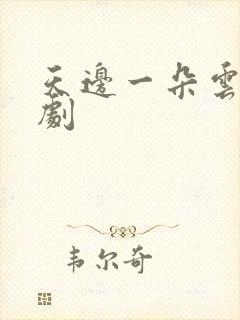 天邊一朵雲
劇
韦尔奇